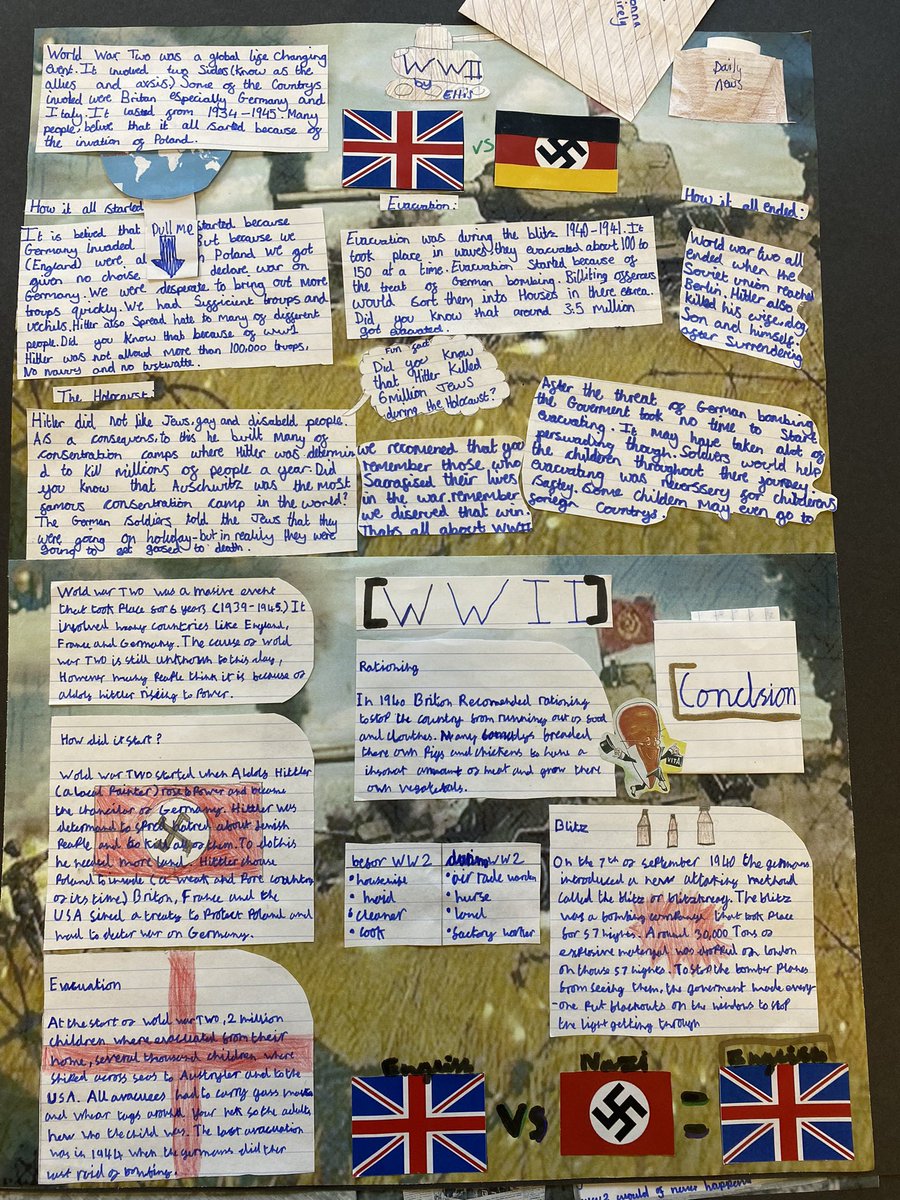 World War Two was a global life changing
event. It involved two Sides (know as the
allies and axsis) Some of the Countrys
involed were Britan especially Germany and
Italy. It lasted from 1934-1945. Many
people, belive that it all sarted because of
the invation of Poland.
WWII
by
Ellis
vs
Daily
News
How it all started
It is belved that started because
Germany Invaded But because we
(England) were, Poland we got
given no choise declare war on
Germany. We were desperate to bring out more
troups quickly. We had Sufficient troups and
vechils. Hitler also Spread hate to many of different
people. Did you Know that because of ww1
Hitler was not allowd more than 100,000 troops,
No navvy and no
Pull me
Evacuation:
Evacuation was during the blitz 1940-1941. It
took place in waves, they evacuated about 100 to
150 at a time. Evacuation Started because of
the treat of German bombing. Billiting offserous
would Sort them into Houses in there earea.
Did you know that around 3.5 million
got evacuated.
How it all ended:
World war two all
ended when the
Soviet union reached
Berlin. Hitler also
killed his wife, dog,
Son and himself
after Surrendering
Fun fact
Did you Know
that Hitler Killed
6 million Jews
during the Holocaust?
The Holocaust
Hitler did not like Jews, gay and disabeld people.
As a consequens, to this he built many of
consentration camps where Hitler was determin
d to kill millions of people a year. Did
you know that Auschwitz was the most
famous consentration camp in the world?
The German Soldiers told the Jews that they
were going on holiday-but in reality they were
going to get gassed to death.
we recomened that you
remember those, who
Sacrafised their lives
in the war. remember
we diserved that win.
Thats all about WWII
After the threat of German bombing
the Goverment took no time to Start
evacuating. It may have taken alot of
perswading though. Soldiers would help
the children throughout there journey.
evacuating was necerssery for childerens
Saftey. Some childern may even go to
foriegn Countrys
Wold war Two was a masive event
that took Place for 6 years (1939-1945.) It
involved many countries like England,
France and Germany. The cause of wold
war Two is still unknown to this day,
However many People think it is because of
aldofs hittler riseing to Power.
[WWII]
Rationing
In 1940 Briton Recomended rationing
to stop the country from running out of food
and clouthes. Many breaded
there own Pigs and chickens to have a
amount of meat and grow there
own vegetabals.
Conclsion
VITA
How did it start?
Wold war Two started when Aldofs Hittler
(a local Painter) rose to Power and became
the chancilor of Germany. Hittler was
determand to spread hatred about Jewish
People and to kill all of them. To do this
he needed more land. Hittler chouse
Poland to invade (a weak and Pore country
of its time) Briton, France and the
USA sined a treaty to Protect Poland and
had to decler war on Germany.
befor WW2
• housewife
• maid
• cleaner
• cook
during WW2
• air rade warden
• nurse
• land
• factory worker
Blitz
On the 7th of september 1940 the germans
introduced a new attaking method
called the blitz or blitzkreag. The blitz
was a bombing campange that took Place
for 57 nights. Around 30,000 Tons of
explosive matereyal was dropped on london
on thouse 57 nights. To stop the bomber Planes
from seeing them, the goverment made every
-one Put blackouts on the windows to stop
the light getting through
Evacuation
At the start of wold war Two, 2 million
children where evacuated from their
home, several thousand children where
shiked across seas to Austryler and to the
USA. All avacuees had to carry gass masks
and whear tags around your nek so the adults
new who the child was. The last avacuation
was in 1944 when the germans did ther
last raid of bombing.
English
Vs
Nazi
=
English
WW2 would of never happens